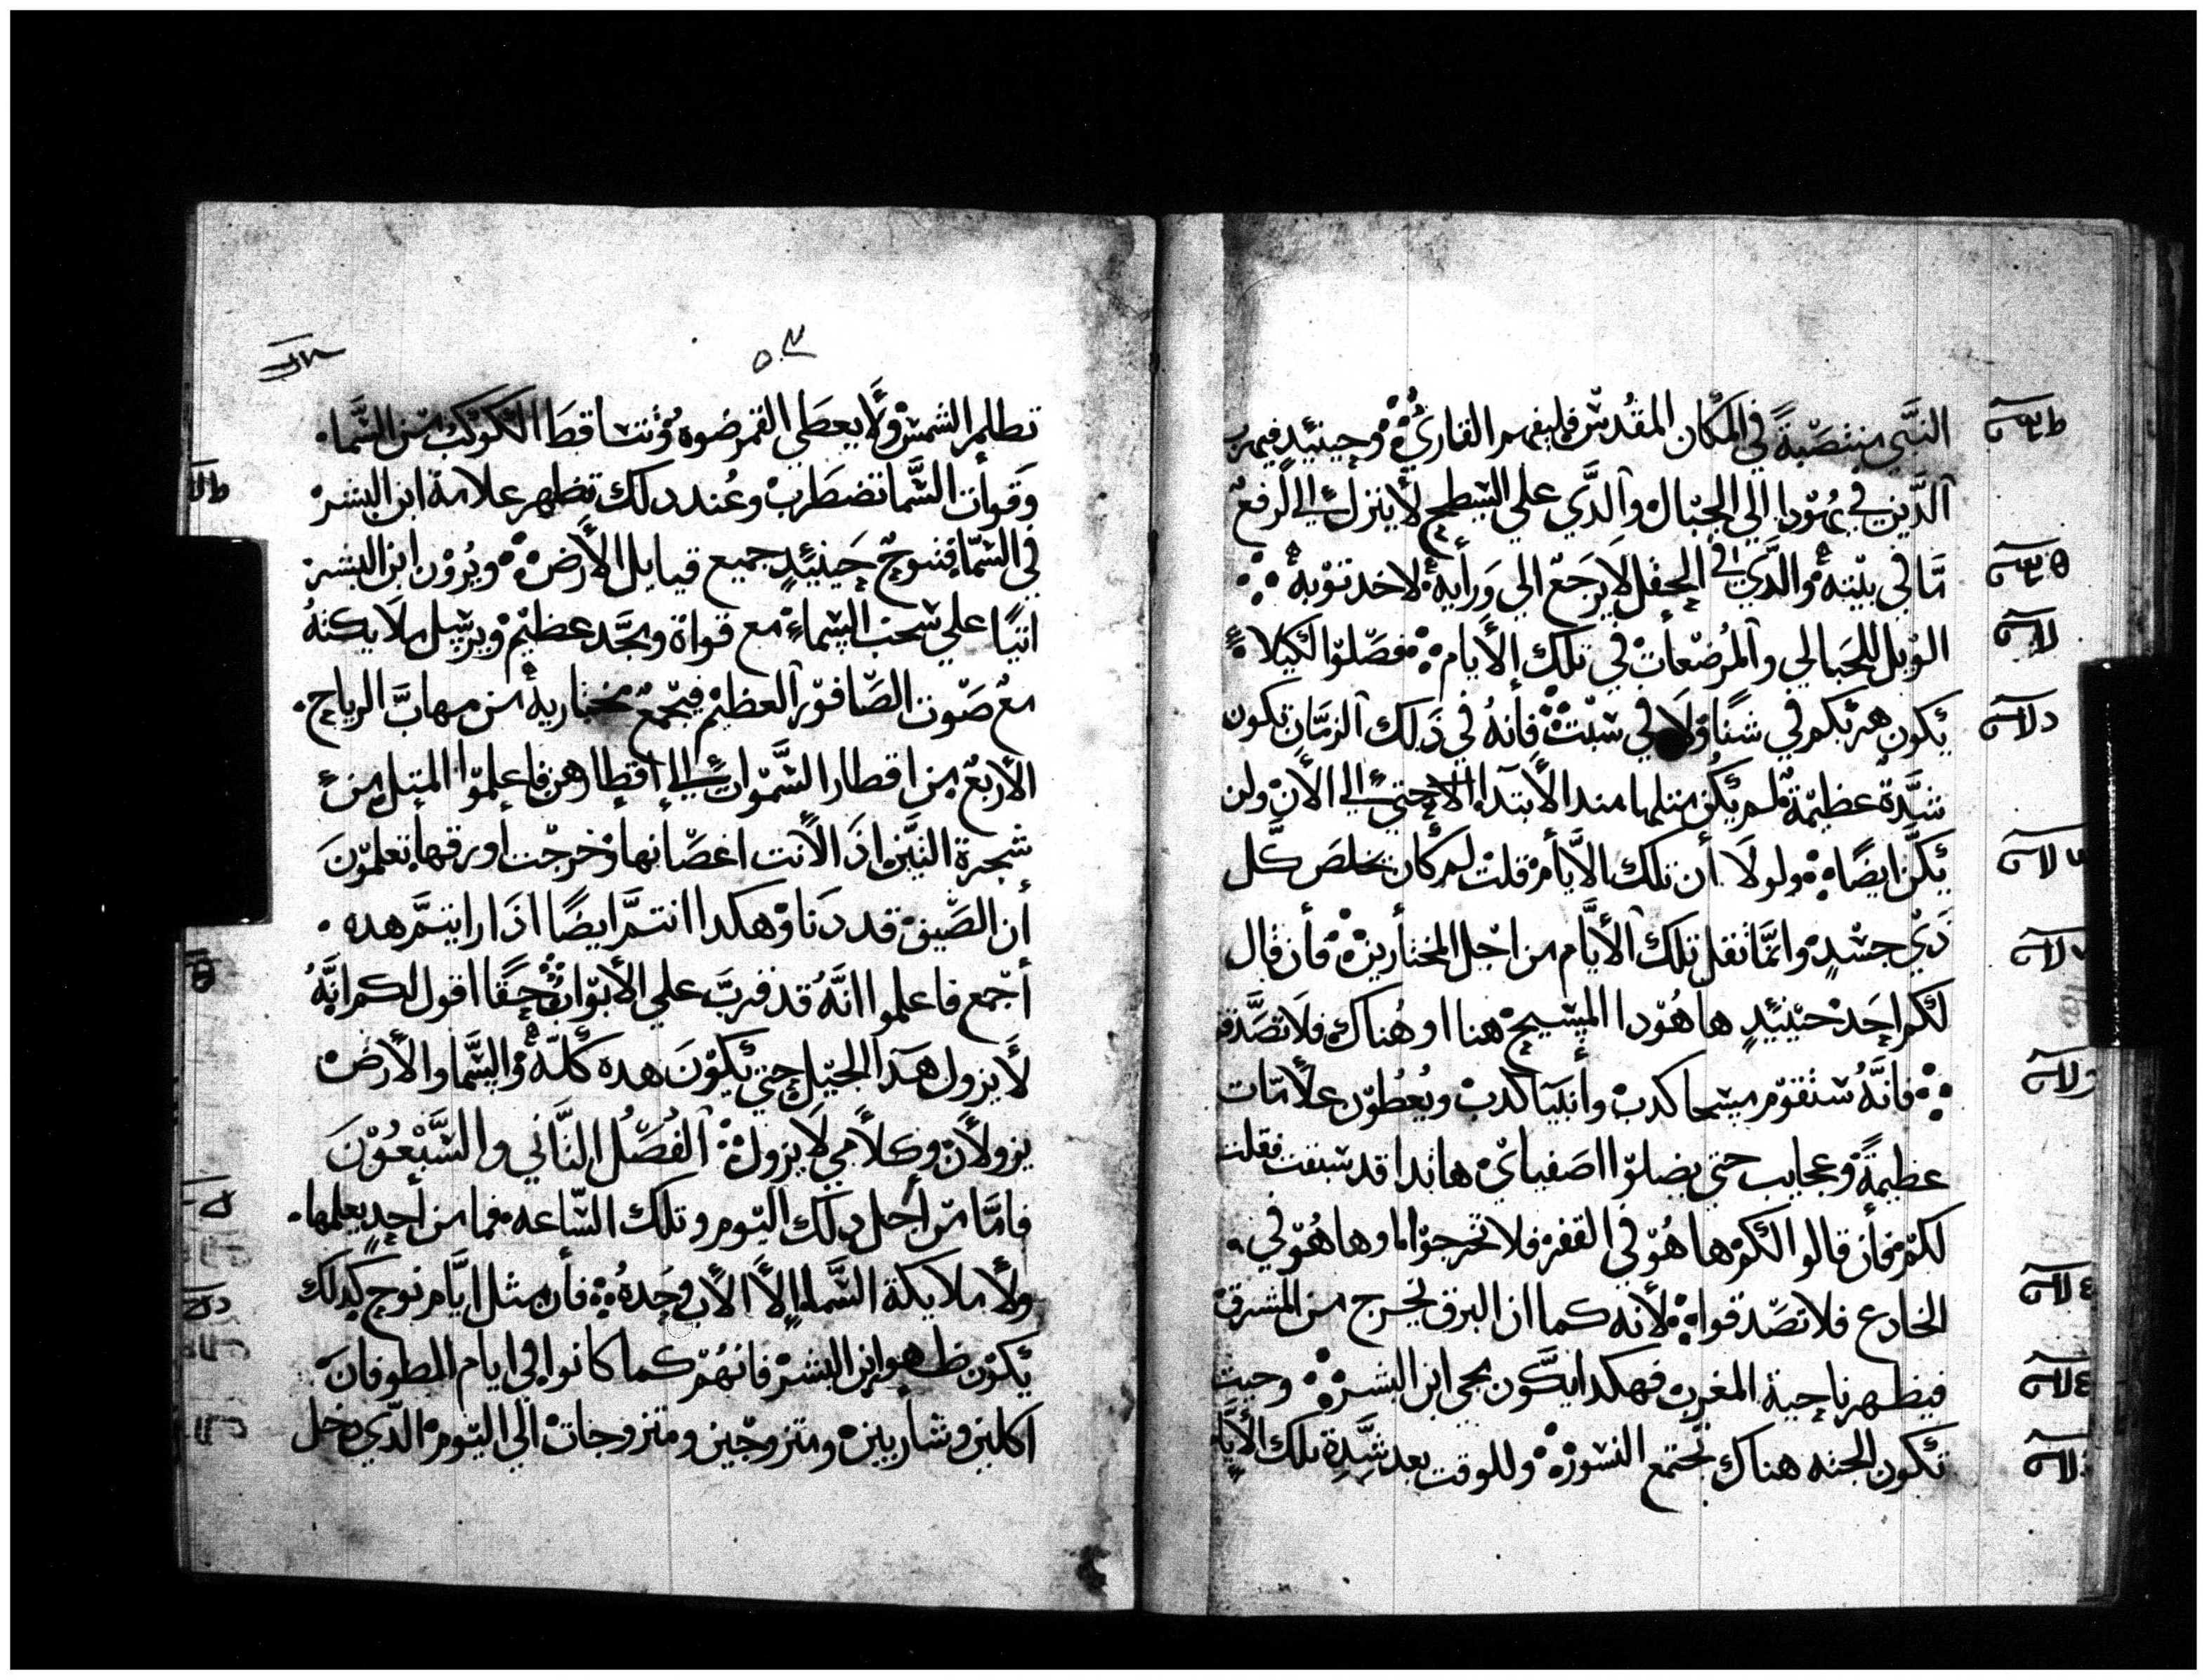 النبي منتصبةً في المكان المقدس فليفهم القاري وحينيدٍ فيهرب
الدين في يهودا الي الجبال والدي علي السطح لا ينزل الي لرفع
ما في بيته والدي في الحقل لا يرجع الي ورايه لاخد توبه
الويل للحبالي والمرضعات في تلك الايام فصلوا لكيلا
يكون هربكم في شتا ولا في سبت فانه في ذلك الزمان تكون
شدة عظيمة لم يكن متلها مند الابتدا الاحتي الي الان ولن
يكن ايضًا ولولا أن تلك الايام قلت لم كان يخلص كل
ذي جسدٍ وانما تقل تلك الايام من اجل المختارين فأن قال
لكم احد حينيدٍ هاهودا المسيح هنا او هناك فلا تصدقو
فانه ستقوم مسحا كدب وأنبيا كدب ويعطون علامات
عظيمة وعجايب حتي يضلوا اصفياي هاندا قد سبقت فقلت
لكم فأن قالوا لكم ها هو في القفر فلا تخرجوا او ها هو في
الخادع فلا تصدقوا لأنه كما ان البرق يخرج من المشرق
فيظهر ناحية المغرب فهكدا يكون مجي ابن البشر وحيت
تكون الجته هناك تجتمع النسور وللوقت بعد شدة تلك الايا
٥٣
تظلم الشمس ولا يعطي القمر ضوه وتتساقط الكوكب من السما
وقوات السما تضطرب وعند دلك تظهر علامة ابن البشر
في السما فتنوح حينيدٍ جميع قبايل الأرض ويرون ابن البشر
اتيًا علي سحب السماء مع قواة ومجد عظيم ويرسل ملايكته
مع صوت الصافور العظيم فيجمع مختاريه من مهاب الرياح
الأربع من اقطار السموات الي أقطارهن فاعلموا المتل من
شجرة التين اذ الانت اغصانها وخرجت أورقها تعلمون
أن الصيف قد دنا وهكدا انتم ايضًا اذا رايتم هده
أجمع فاعلموا انه قد قرب علي الأبواب حقًا اقول لكم انه
لا يزول هدا الجيل حتي يكون هده كله والسما والارض
يزولان وكلامي لا يزول الفصل التاني والسبعون
فاما من أجل دلك اليوم وتلك الساعه فما من أحدٍ يعلمها
ولا ملايكة السما إلا الأب وحده فأن مثل ايام نوح كدلك
يكون ظهور ابن البشر فانهم كما كانوا في ايام الطوفان
اكلين وشاربين ومتزوجين ومتزوجات الي اليوم الدي دخل